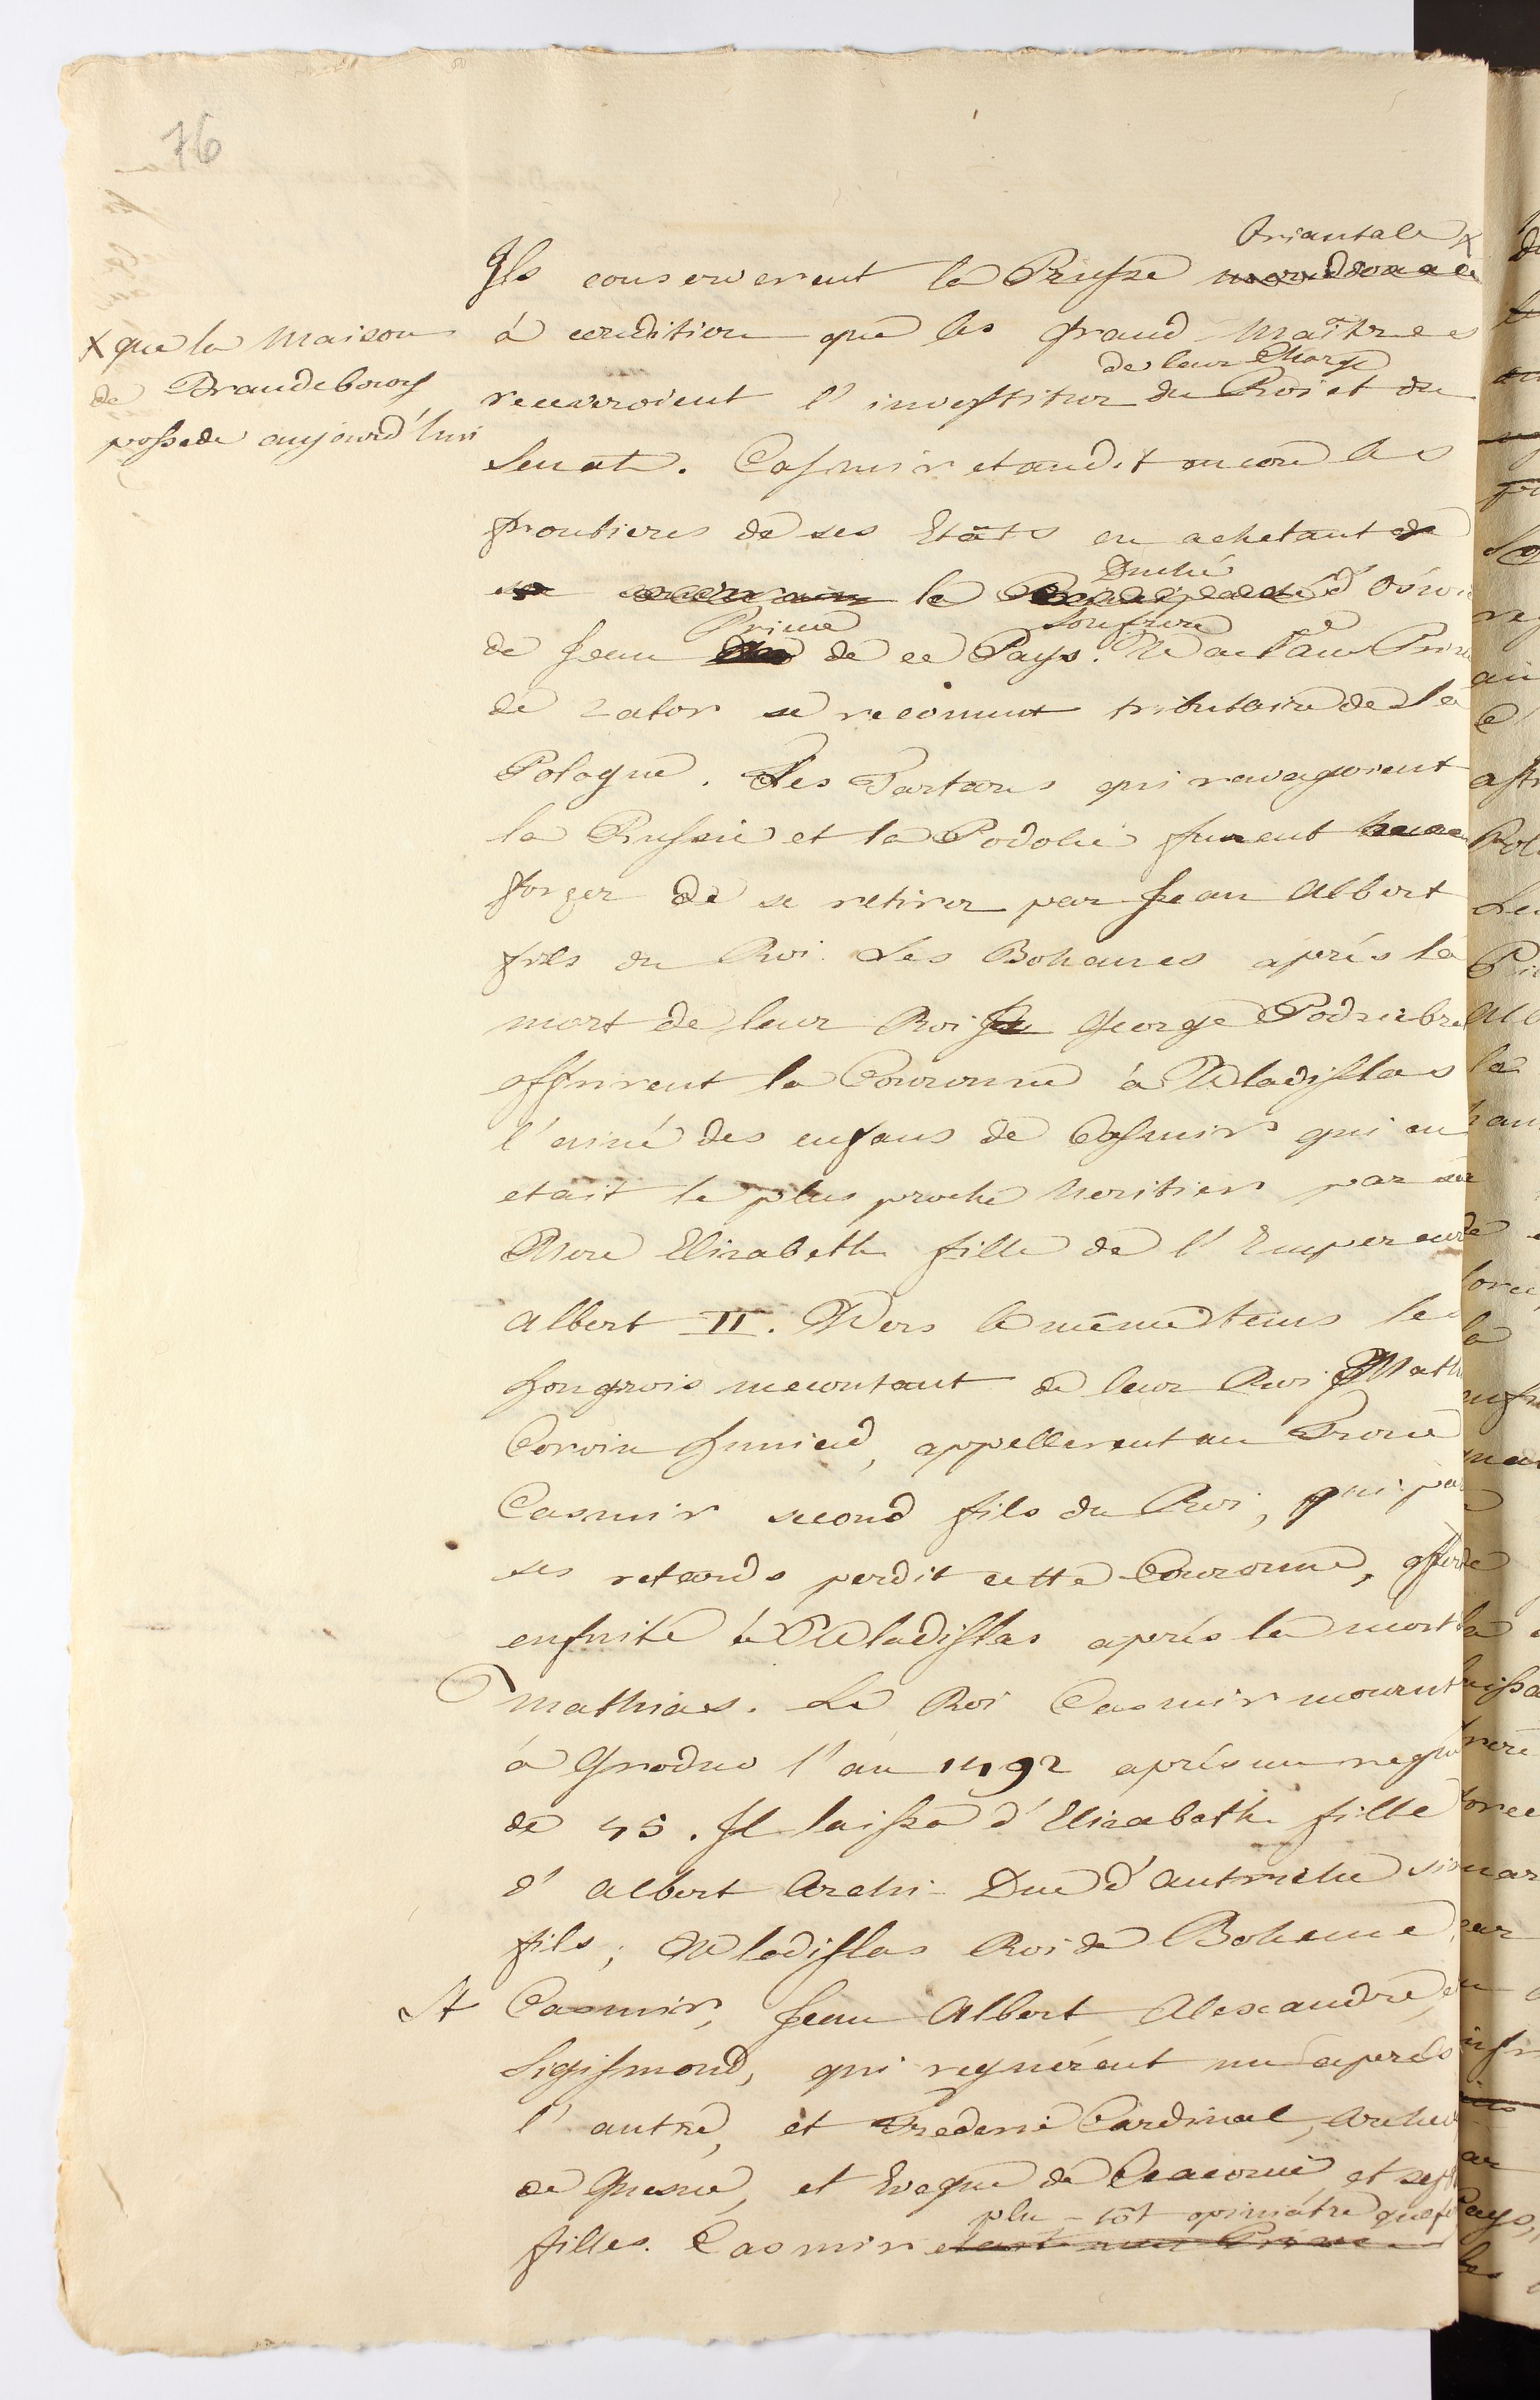 76
Oriantale x
Ils conserverent la Prusse
x que la Maison
de Brandebourg
possede aujourd'hui
à condition que les grand Maîtres
de leur Charge
receveroient l'investitur du Roi et du
Senat. Casmir etandit encore les
frontieres de ses Etats en achetant de
Duché
le d'Oswie
Prince Son frere
de Jean de ce Pays. Waclaw Prin
de Zator se reconnut tributaire de la
Pologne. Les Tartares qui ravagoient
la Russie et la Podolie furent
forçer de se retirer par Jean Albert
fils du Roi. Les Bohemes aprés la
mort de leur Roi George Podziebra
offrirent la Couronne à Wladislas
l'ainé des enfans de Casmir qui en
etait le plus proche heritier par sa
Mere Elizabeth fille de l'Empereur
Albert II. Vers le même tems les
hongrois mecontant de leur Roi Math
Corvin Huniad, appellerent au Trone
Casmir second fils du Roi, qui par
ses retards perdit cette Couronne, offerte
ensuite à Wladislas aprés la mort
Mathias. Le Roi Casmir mourut
à Grodno l'an 1492 aprés un regne
de 45. Il laissa d'Elizabeth fille
d'Albert Archi-Duc d'Autriche six
fils; Wladislas Roi de Boheme,
St Casmir, Jean Albert, Alexandre, et
Sigismond, qui regnérent un aprés
l'autre, et Frederic Cardinal, Archev
de Gnesne, et Eveque de Cracovie, et sept
plu-tôt opiniâtre que f
filles. Casmir etait un Prince